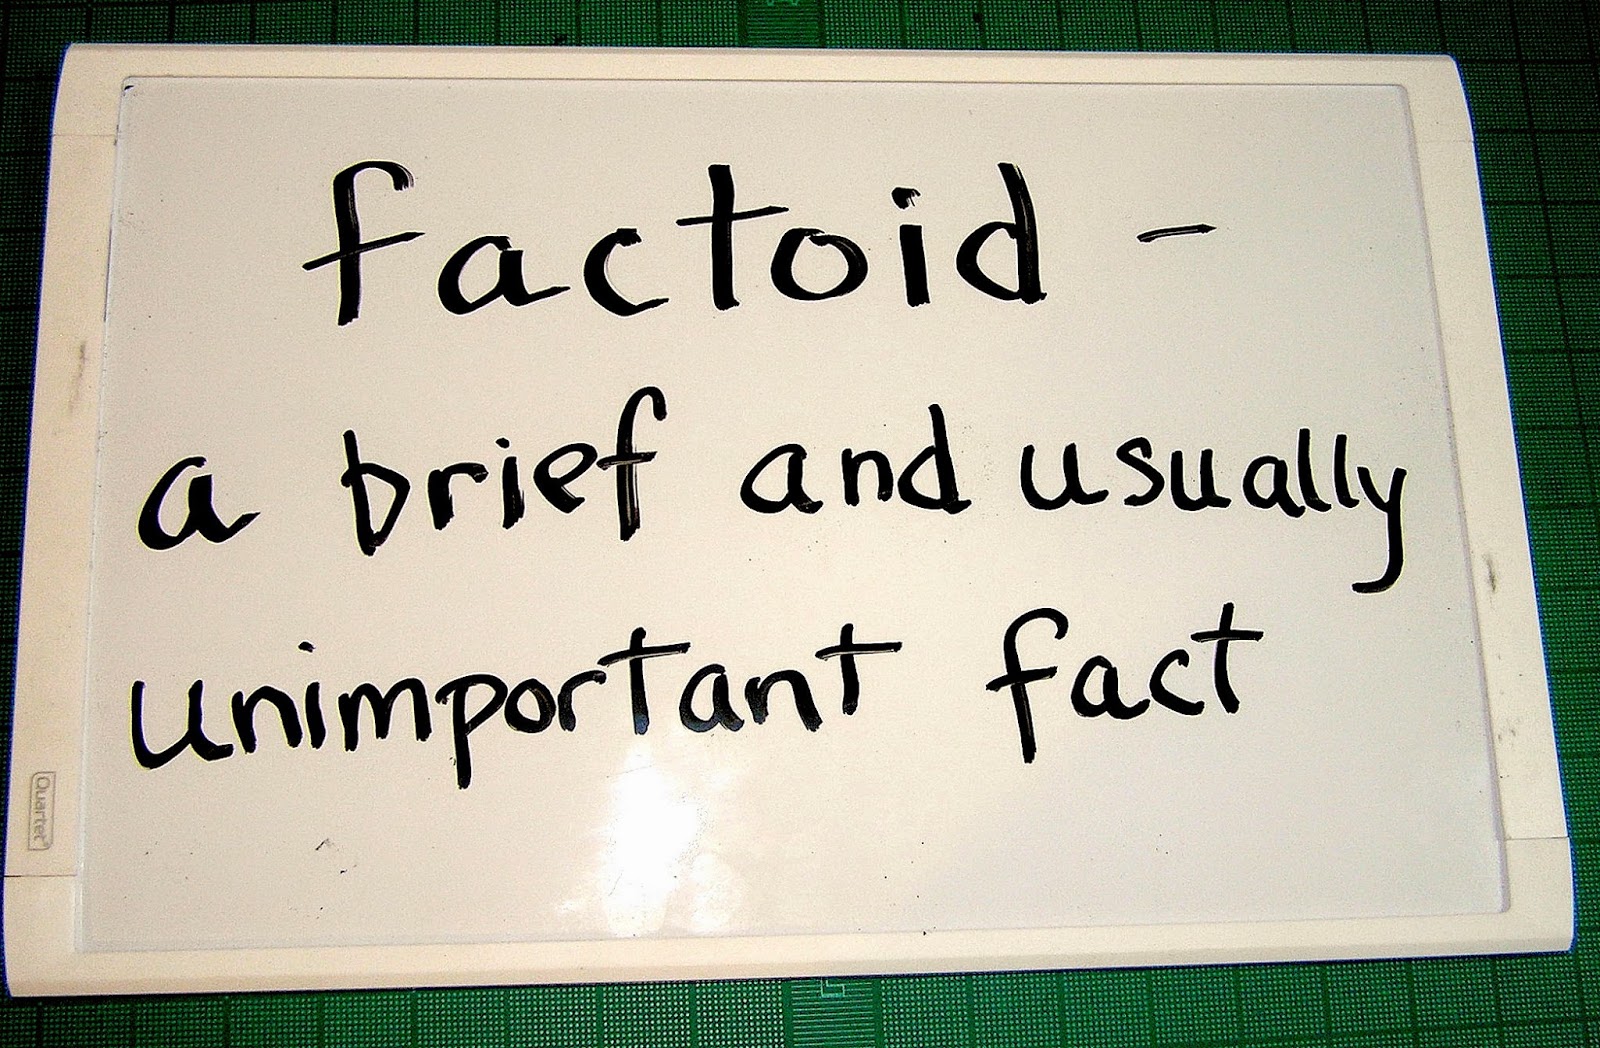 factoid -
a brief and usually
unimportant fact
Quartet